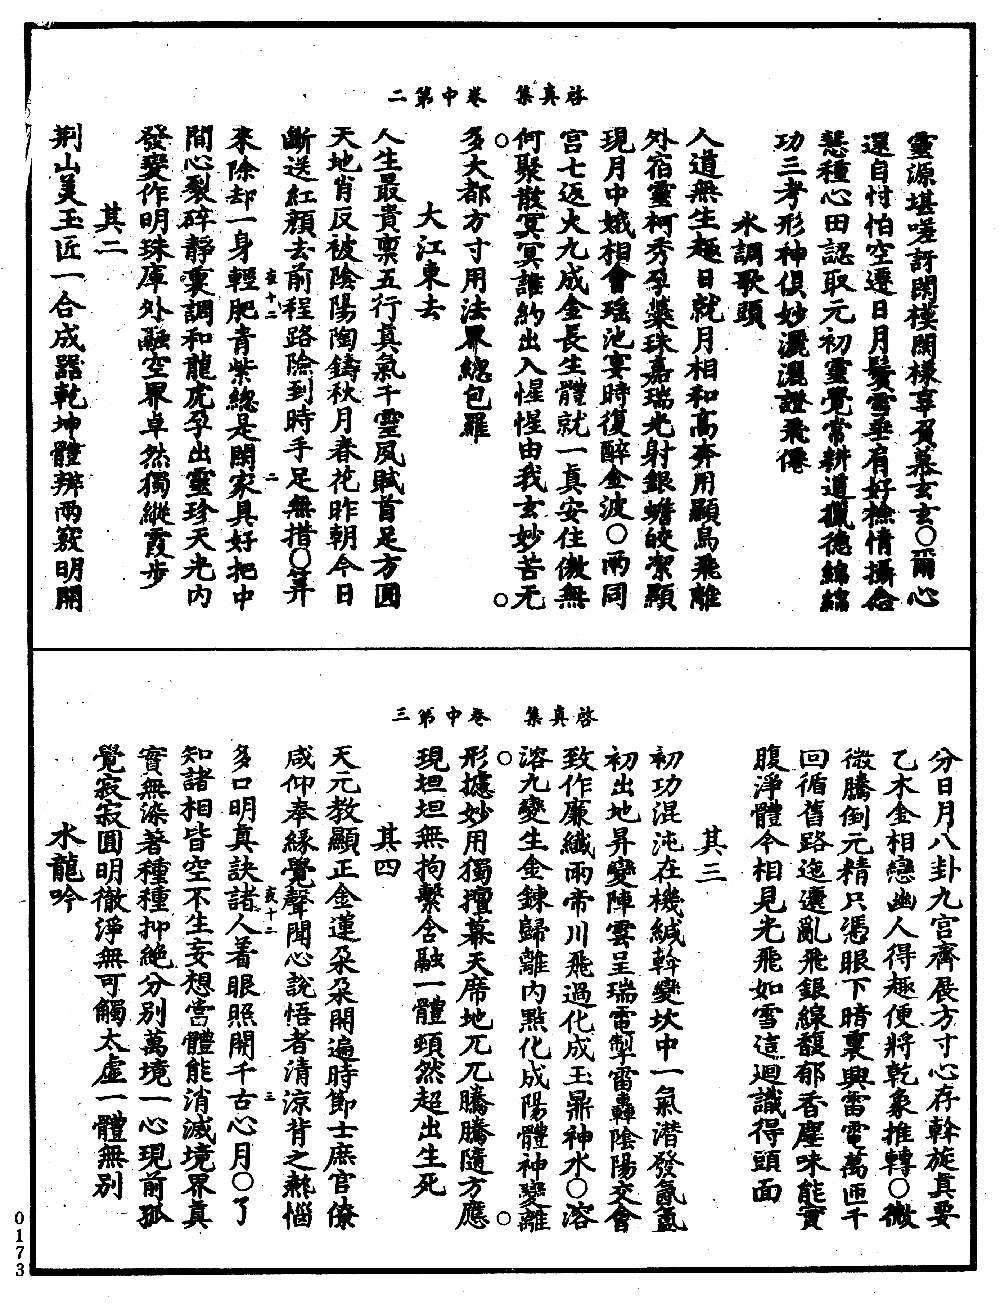 啓真集　卷中第二
靈源堪嗟訝閑模閑樣享㒵慕玄玄○爾心
還自忖怕空遷日月鬢雪垂肩好檢情攝念
慧種心田認取元初靈覺常耕道獵德綿綿
功三考形神俱妙灑灑證飛僊
水調歌頭
人道無生趣日就月相和高奔用顯烏飛離
外宿靈柯秀孕蘂珠嘉瑞光射銀蟾皎潔顯
現月中娥相會瑶池宴時復醉金波○兩同
宫七返火九成金長生體就一真安住儌無
何聚散冥冥誰約出入惺惺由我玄妙苦无○
○多大都方寸用法界總包羅
大江東去
人生最貴禀五行真氣千靈夙賦首足方圓
天地肖反被陰陽陶鑄秋月春花昨朝今日
斷送紅顔去前程路險到時手足無措○筭
來除却一身輕肥青紫總是閑家具好把中
間心裂碎靜裏調和龍虎孕出靈珍天光内
發變作明珠庫外融空界卓然獨縱霞步
其二
荆山美玉匠一合成器乾坤體辨兩竅明開
亥十二　二
啓真集　卷中第三
分日月八卦九宫齊展方寸心存斡旋真要
乙木金相戀幽人得趣便將乾象推轉○微
微騰倒元精只憑眼下暗裏興雷電萬匝千
回循舊路迤邐亂飛銀線馥郁香塵味能實
腹淨體令相見光飛如雪這迴識得頭面
其三
初功混沌在機緘斡變坎中一氣潜發氤氳
初出地昇變陣雲呈瑞電掣雷轟陰陽交會
致作廉纖雨帝川飛過化成玉鼎神水○溶
溶九變生金鍊歸離内點化成陽體神變離○
○形據妙用獨擅幕天席地兀兀騰騰隨方應
現坦坦無拘繫含融一體頭然超出生死
其四
天元教顯正金蓮朵朵開遍時節士庶官僚
咸仰奉緣覺聲聞心説悟者清涼背之熱惱
多口明真訣諸人着眼照開千古心月○了
知諸相皆空不生妄想當體能消滅境界真
實無染著種種抑絶分别萬境一心現前孤
覺寂寂圓明徹淨無可觸太虚一體無别
水龍吟
亥十二　三
0173